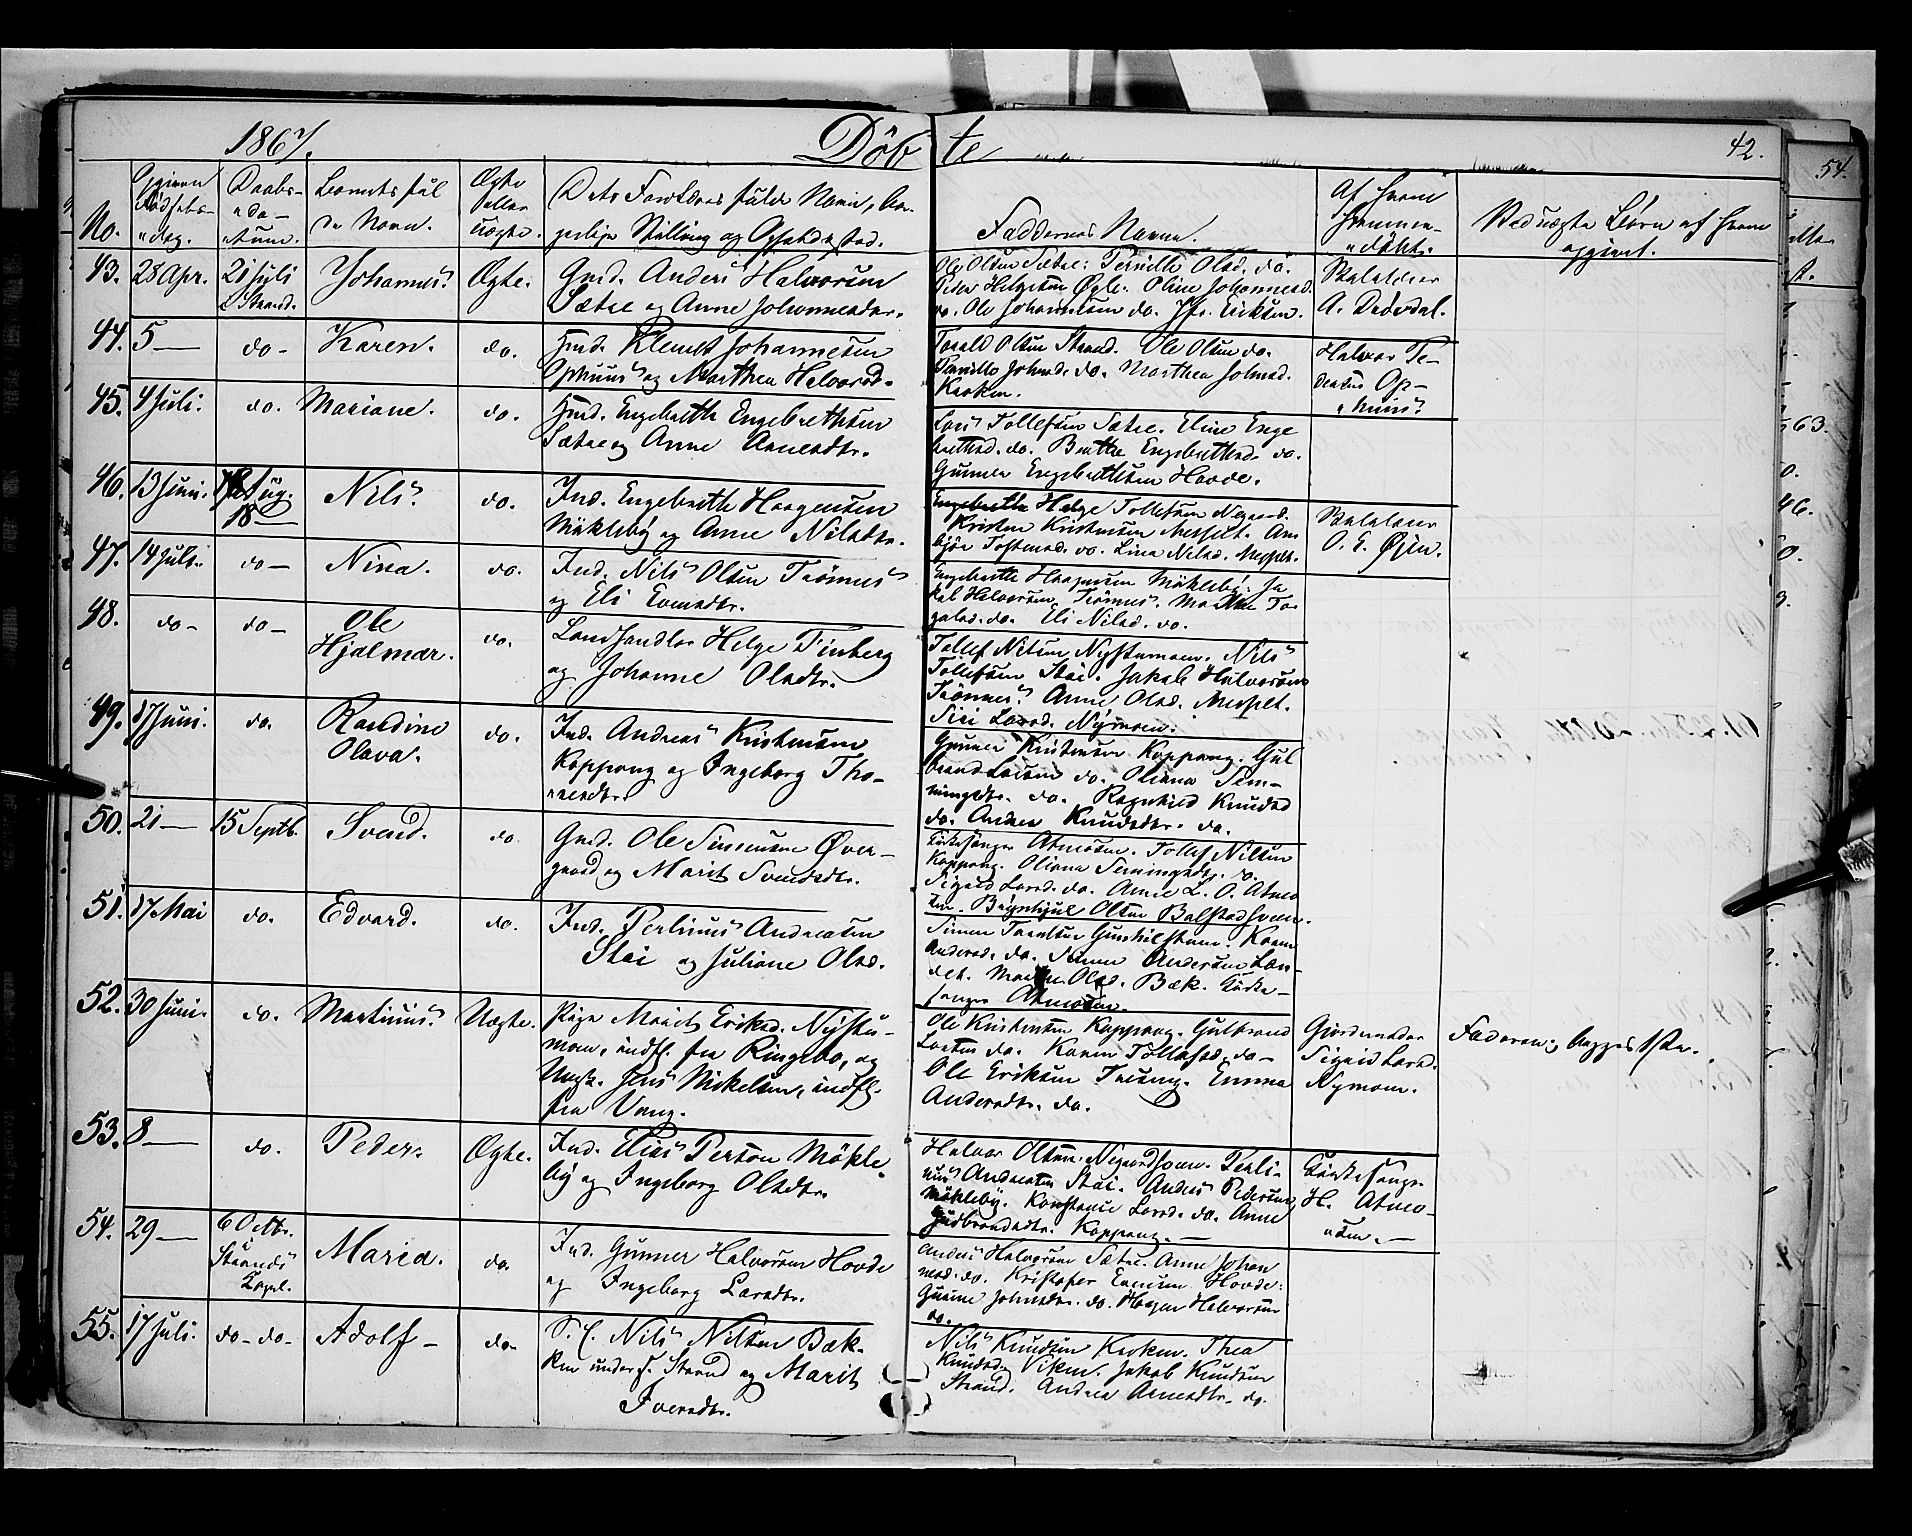 1867.
Döbte
42.
54.
No.
Opgiven Fødsels-Dag.
Daabs-datum.
Barnets fulde Navn.
Ægte eller uægte.
Dets Forældres fulde Navn, borgerlige Stilling og Opholdssted.
Faddernes Navne.
Af hvem hjemmedöbt.
Ved uægte Börn af hvem opgivet.
43. 28 Apr. 21 Juli Strand. Johannes. Ægte. Gmd. Anders Halvorsen
Sætre og Anne Johannesdtr.
Ole Olsen Sætre. Pernille Olsd. do.
Peder Helgesen Øgle. Oline Johannesd.
do. Ole Johannesen do. Eriksen.
Skolelærer
A. Drövdal.
44. 5 — do- Karen. do. Hmd. Klemet Johannesen
Ophuus og Marthea Halvorsd.
Torald Olsen Strand. Ole Olsen do.
Pernille Johnsd. do. Marthea Johnsd.
Kroken.
Halvor Pedersen Ophuus.
45. 4 Juli. do. Mariane. do. Hmd. Engebreth Engebrethsen
Sætre og Anne Arnesdtr.
Lars Tollefsen Sætre. Eline Engebrethsd. do. Berthe Engebrethsd. do.
Gunner Engebrethsen Hovde.
46. 13 Juni. Aug. 18 — Nils. do. Ind. Engebreth Haagensen
Mökleby og Anne Nilsdtr.
Helge Tollefsen Nygaard.
Kristen Kristensen Messelt.
do. Lina Nilsd. Messelt.
Skolelærer
O. E. Øjen.
47. 14 Juli. do- Nina. do. Ind. Nils Olsen Trönnes
og Eli Evensdtr.
Engebreth Haagensen Mökleby. Jakob Halvorsen Trönnes.
do. Eli Nilsd. do.
48. do- do- Ole
Hjalmar. do. Landhandler Helge Finberg
og Johanne Olsdtr.
Tollef Nilsen Nystumoen. Nils
Tollefsen Stai. Jakob Halvorsen
Trönnes. Anne Olsd. Messelt.
Siri Larsd. Nymoen.
49. 17 Juni. do. Randine
Olava. do. Ind. Andreas Kristensen
Koppang og Ingeborg Thoresdtr.
Gunner Kristensen Koppang. Gulbrand Larsen do. Oliana Semmingsdtr. do. Ragnhild Knudsd
do. Andrea Knudsdtr. do.
50. 21 — 15 Septb. Svend. do. Gmd. Ole Simensen Øvergaard og Marit Svendsdtr.
Kirkesanger Atmosen. Tollef Nilsen
Koppang. Oliana Semmingsdtr. do.
Sigrid Larsd. do. Anne L. O. Atmosen. Brynhjul Olsen Bolstadsveen.
51. 17 Mai do. Edvard. do. Ind. Perlinus Andreasen
Stai og Juliane Olsd.
Simen
Andersd. do. Simen Andersen
Olsd. Bæk. Kirkesanger Atmosen.
52. 30 Juni. do. Martinus. Uægte. Pige Marit Eriksd. Nystumoen, indfl. fra Ringebo, og
Ungk. Jens Mikelsen, indfl.
fra Vang.
Ole Kristensen Koppang. Gulbrand
Larsen do. Karen Tollefsd. do-
Ole Eriksen Emma
Andersdtr. do.
Gjordemoder
Sigrid Larsd.
Nymoen.
Faderen;
53. 8 — do. Peder. Ægte. Ind. Elias Persen Mökleby og Ingeborg Olsdtr.
Halvor Olsen Nigardsveen. Perlinus Andreasen Stai. Anders Pedersen
Mökleby. Konstanse Larsd. do. Anne
Gudbrandsdtr. Koppang. —
Kirkesanger
H. Atmosen. —
54. 29 — 6 Octbr.
Strands
Kapel. Maria. do. Ind. Gunner Halvorsen Hovde
og Ingeborg Larsdtr.
Anders Halvorsen Sætre. Anne Johannesd. do. Kristofer Evensen Hovde.
Gurine Johnsdtr. do. Haagen Halvorsen
do.
55. 17 Juli. do- do- Adolf - do- Nils Nilsen Bækken under Strand og Marit
Iversdtr.
Nils Knudsen Kroken. Thea
Knudsd. Viken. Jakob Knudsen
Strand. Andrea Arnesdtr. do.